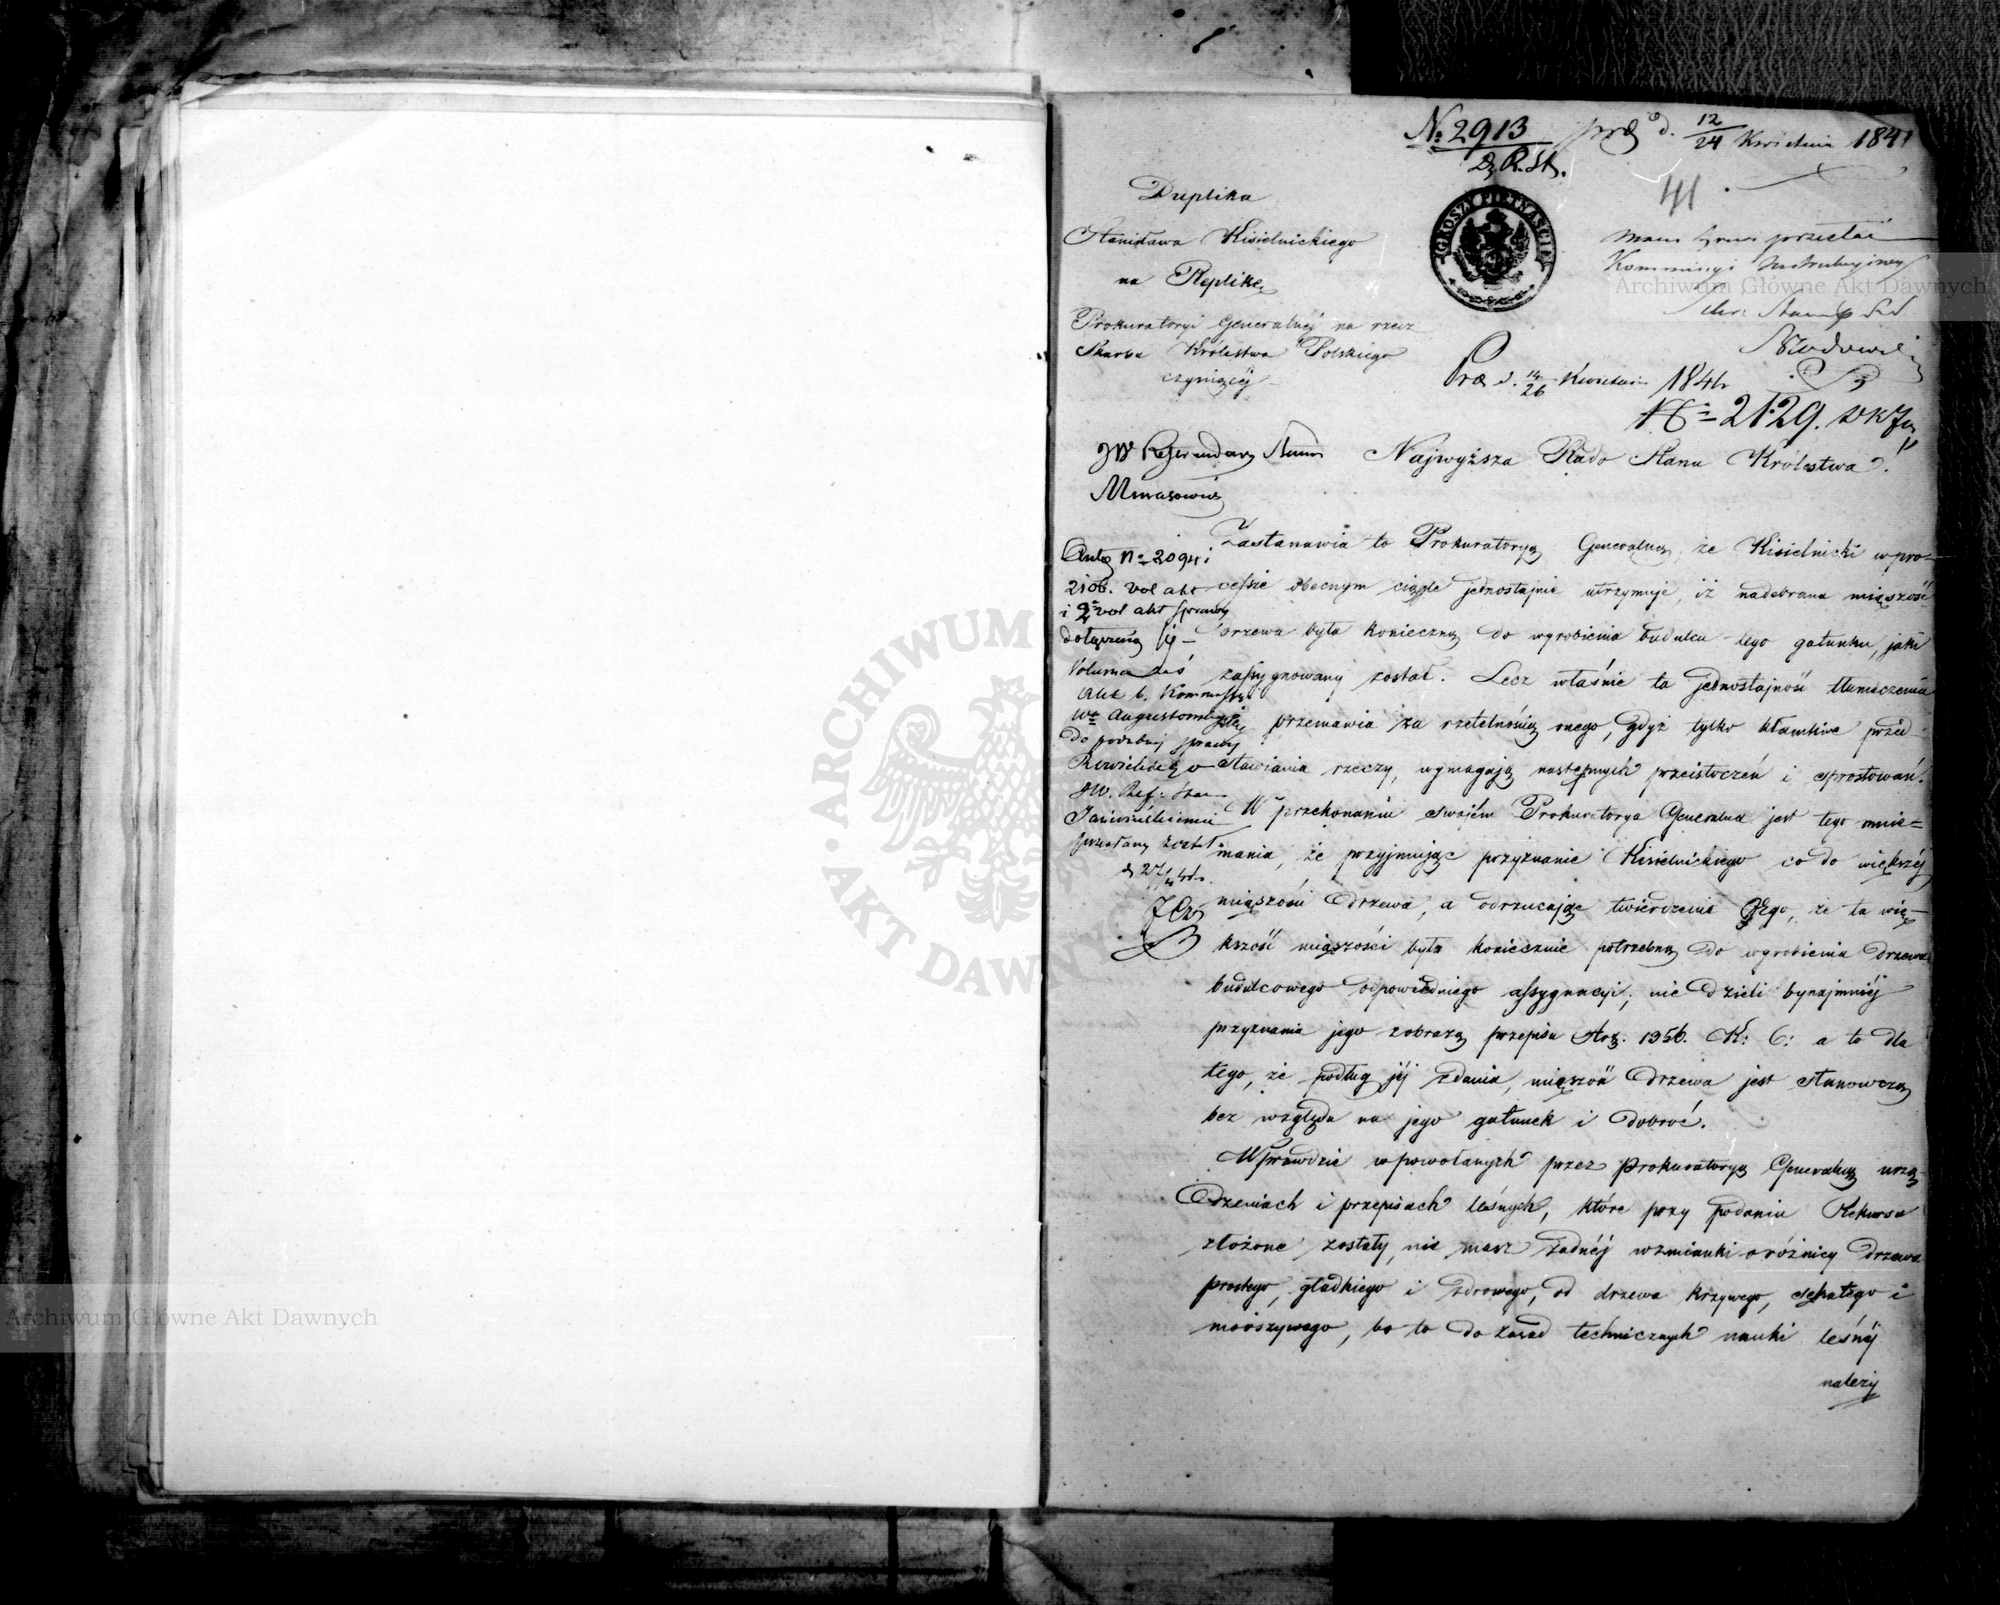 No 2913 præs d. 12/24 Kwietnia 1841
D. R. St.
41.
Duplika
Stanisława Kisielnickiego
na Replikę
Prokuratoryi Generalnéj na rzecz
Skarbu Królestwa Polskiego
czyniącéj
GROSZY PIĘTNAŚCIE
przesłać
Kommissyi Instrukcyjnej
Præs d. 14/26 Kwietnia 1841
No 2129.
JW Referendarz Stanu
Najwyższa Rado Stanu Królestwa!
No 2094 i
2106. vol akt
i 2 vol akt sprawy
dołączeniu
Volumen zaś
Akt b. Kommissyi
Wa Augustowskiego
do podobnej sprawy
JW. Ref: Stanu
przesłany został
d 27/4 41 r.
Zastanawia to Prokuratoryą Generalną, że Kisielnicki w pro-
cessie obecnym ciągle jednostajnie utrzymuje, iż nadebrana miąższość
drzewa była konieczną do wyrobienia budulcu tego gatunku, jaki
zassygnowany został. Lecz właśnie ta jednostajność tłumaczenia
przemawia za rzetelnością onego, gdyż tylko kłamliwe przed-
stawiania rzeczy, wymagają następnych przeistoczeń i sprostowań.
W przekonaniu swojém Prokuratorya Generalna jest tego mnie-
mania, że przyjmując przyznanie Kisielnickiego co do większéj
miąszości drzewa, a odrzucając twierdzenie Jego, że ta wię-
kszość miąszości była koniecznie potrzebną do wyrobienia drzewa
budulcowego odpowiedniego assygnacyi, nie dzieli bynajmniéj
przyznania jego z obrazą przepisu Art. 1356. K: C: a to dla
tego, że podług jéj zdania, miąszość drzewa jest stanowczą
bez względu na jego gatunek i dobroć.
Wprawdzie w powołanych przez Prokuratoryą Generalną urzą-
dzeniach i przepisach leśnych, które przy podaniu Rekursu
złożone zostały, nie masz żadnéj wzmianki o różnicy drzewa
prostego, gładkiego i zdrowego, od drzewa krzywego, sękatego i
murszywego, bo to do zasad technicznych nauki leśnéj
należy
Archiwum Główne Akt Dawnych
ARCHIWUM GŁÓWNE AKT DAWNYCH
Archiwum Główne Akt Dawnych